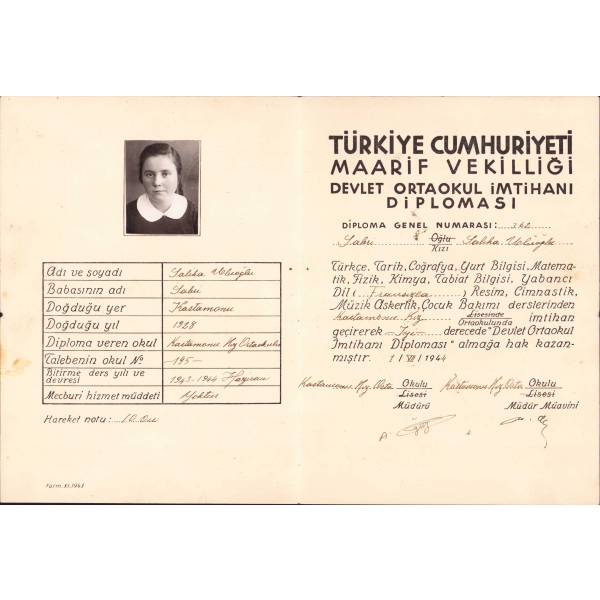 Adı ve soyadı Saliha Velioğlu
Babasının adı Sabri
Doğduğu yer Kastamonu
Doğduğu yıl 1928
Diploma veren okul Kastamonu Kız Ortaokulu
Talebenin okul No 195-
Bitirme ders yılı ve devresi 1943-1944 Haziran
Mecburi hizmet müddeti Yoktur
Hareket notu: 10 On
Form. XI. 1943
TÜRKİYE CUMHURİYETİ
MAARİF VEKİLLİĞİ
DEVLET ORTAOKUL İMTİHANI
DİPLOMASI
DİPLOMA GENEL NUMARASI: 342
Sabri Oğlu Kızı Saliha Velioğlu
Türkçe, Tarih, Coğrafya, Yurt Bilgisi, Matema-
tik, Fizik, Kimya, Tabiat Bilgisi, Yabancı
Dil ( Fransızca ) Resim, Cimnastik,
Müzik Askerlik, Çocuk Bakımı derslerinden
Kastamonu Kız Lisesinde Ortaokulunda imtihan
geçirerek İyi derecede "Devlet Ortaokul
İmtihanı Diploması" almağa hak kazan-
mıştır. 1/VII/1944
Kastamonu Kız Orta Okulu Lisesi Müdürü
Kastamonu Kız Orta Okulu Lisesi Müdür Muavini